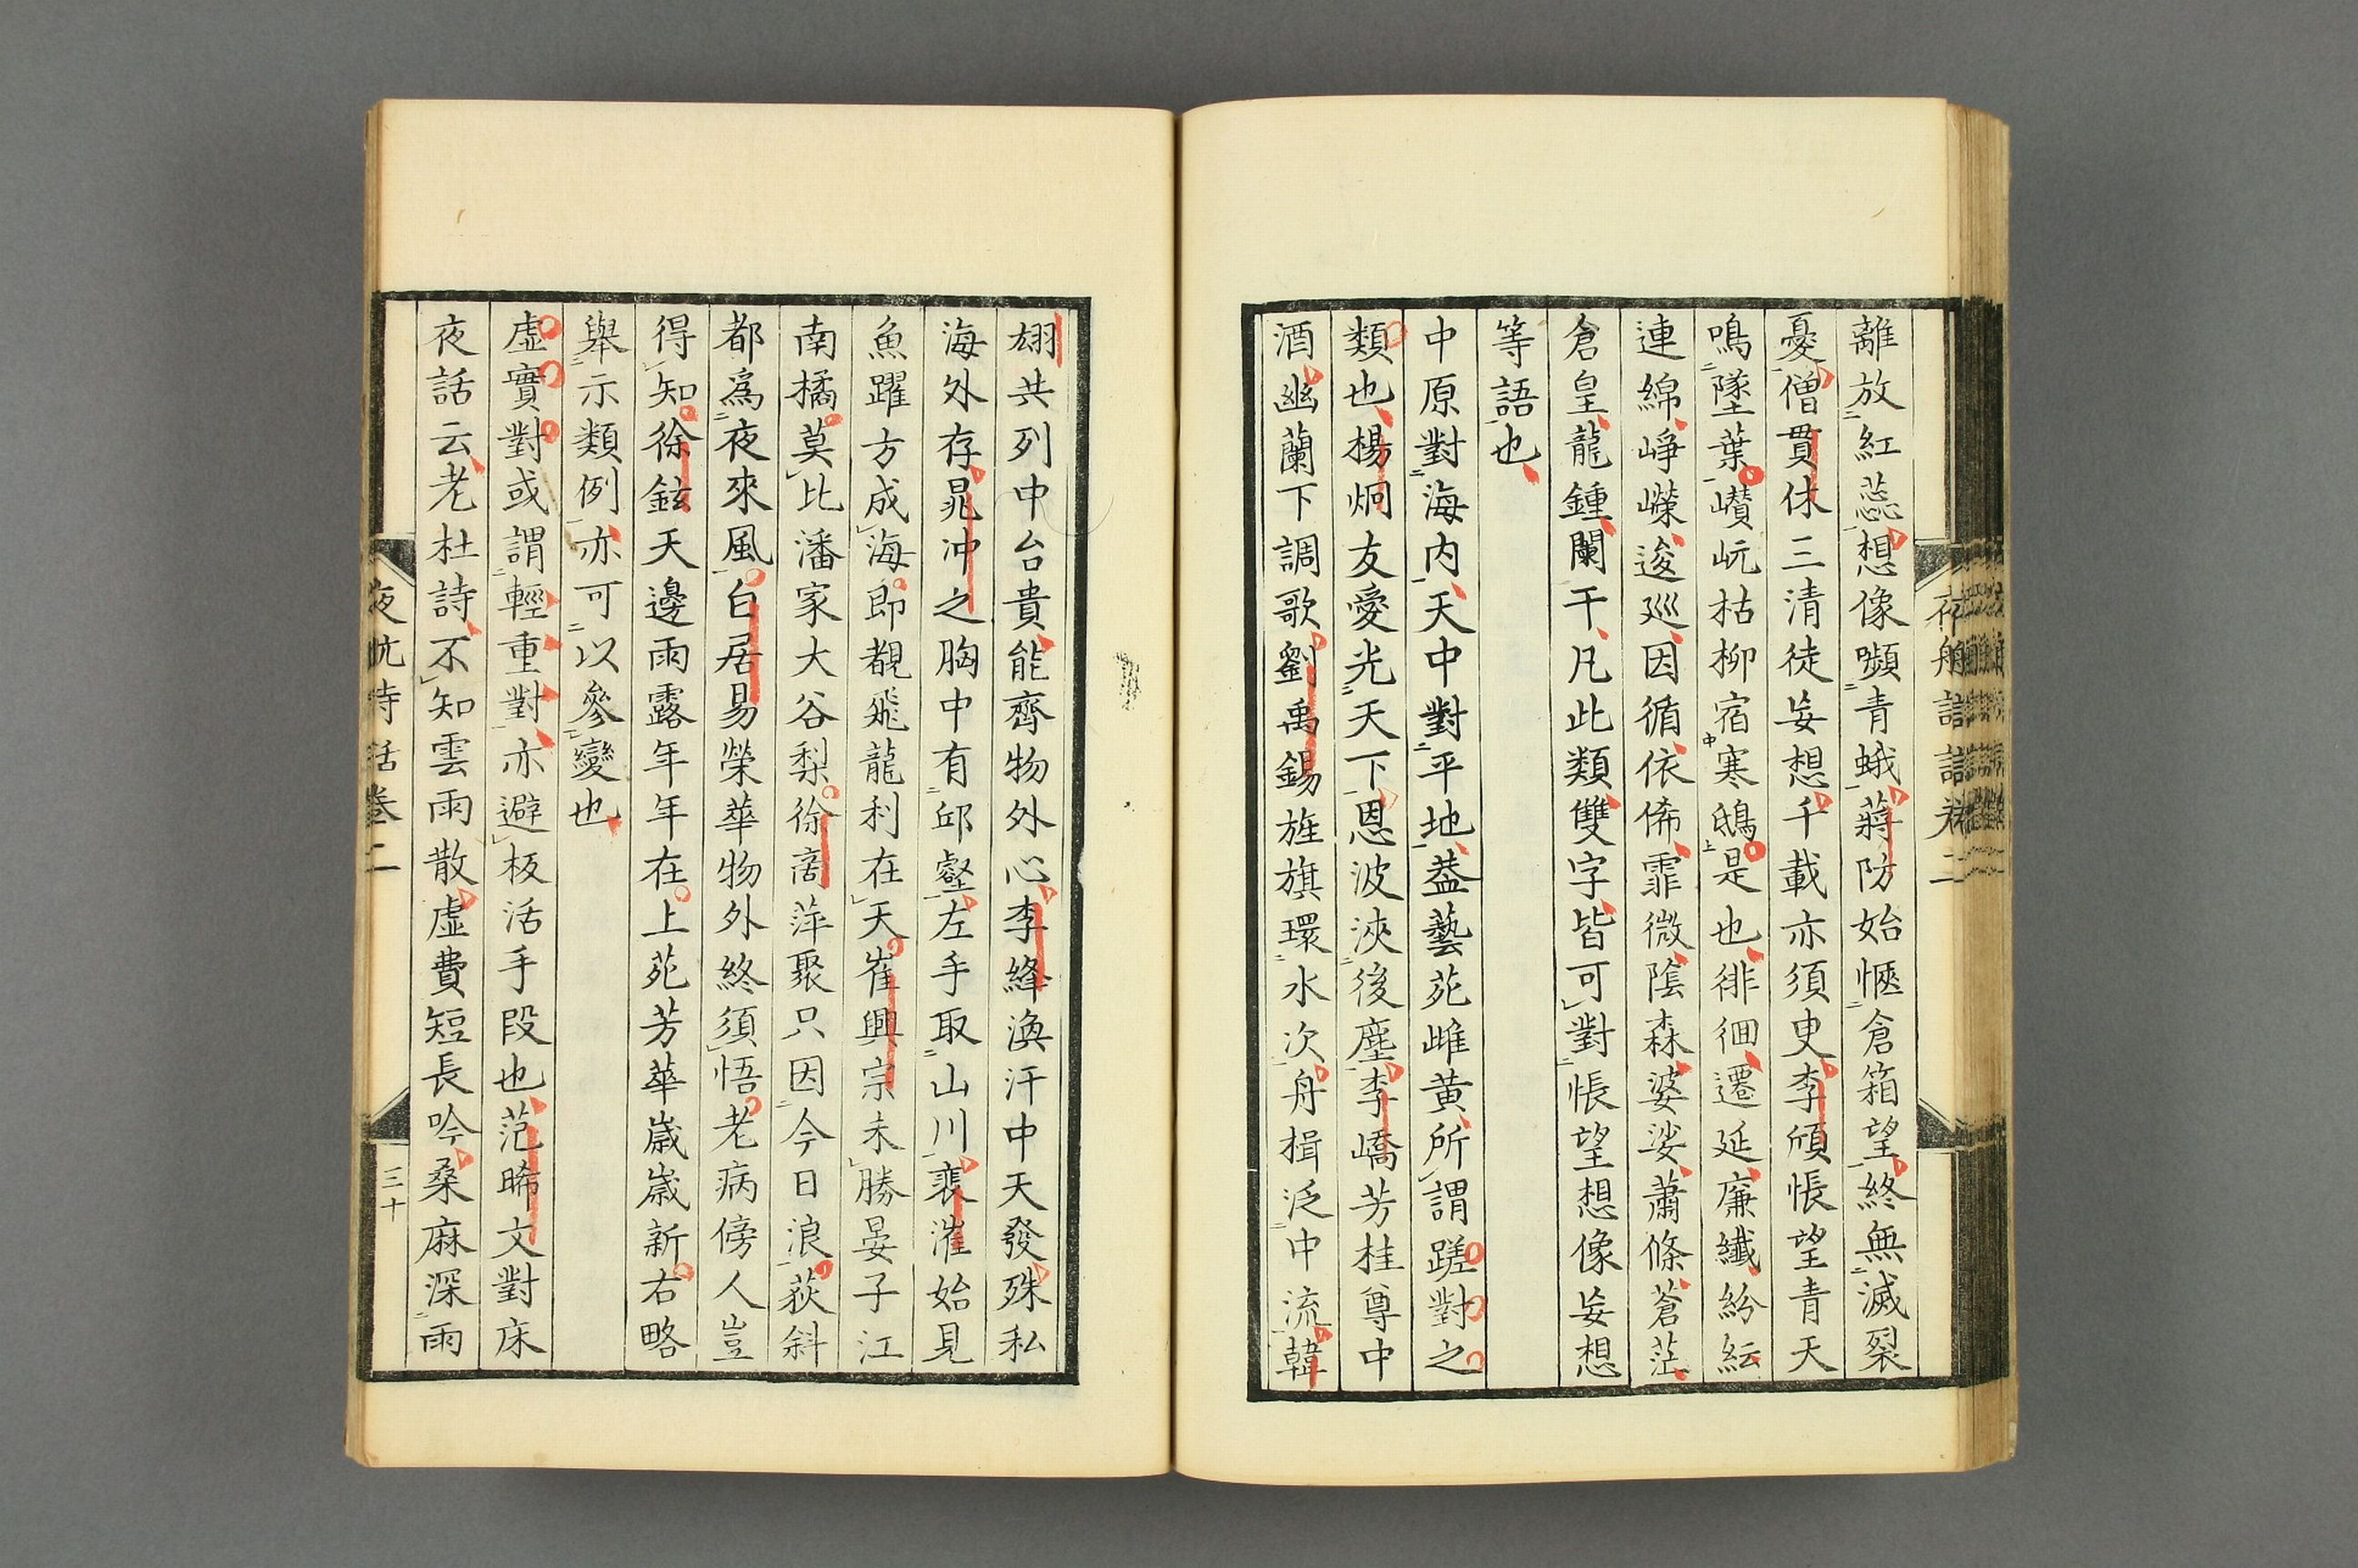 離放紅蕊想像嚬青蛾蔣防始愜倉箱望終無滅裂
憂僧貫休三清徒妄想千載亦須史李頎悵望青天
鳴墜葉巑岏枯柳宿寒鴟是也徘徊遷延廉纖紛紜
連綿崢嶸逡巡因循依俙霏微陰森婆娑蕭條蒼茫
倉皇龍鍾闌干凡此類雙字皆可對悵望想像妄想
等語也
中原對海內天中對平地葢藝苑雌黃所謂蹉對之
類也楊炯友愛光天下恩波浹後塵李嶠芳桂尊中
酒幽蘭下調歌劉禹錫旌旗環水次舟楫泛中流韓
翃共列中台貴能齊物外心李絳渙汗中天發殊私
海外存晁冲之胸中有邱壑左手取山川裴漼始見
魚躍方成海即覩飛龍利在天崔興宗未勝晏子江
南橘莫比潘家大谷梨徐商萍聚只因今日浪荻斜
都爲夜來風白居易榮華物外終須悟老病傍人豈
得知徐鉉天邊雨露年年在上苑芳華歲歲新右略
舉示類例亦可以參變也
虛實對或謂輕重對亦避板活手段也范晞文對床
夜話云老杜詩不知雲雨散虛費短長吟桑麻深雨
夜航詩話卷二
三十